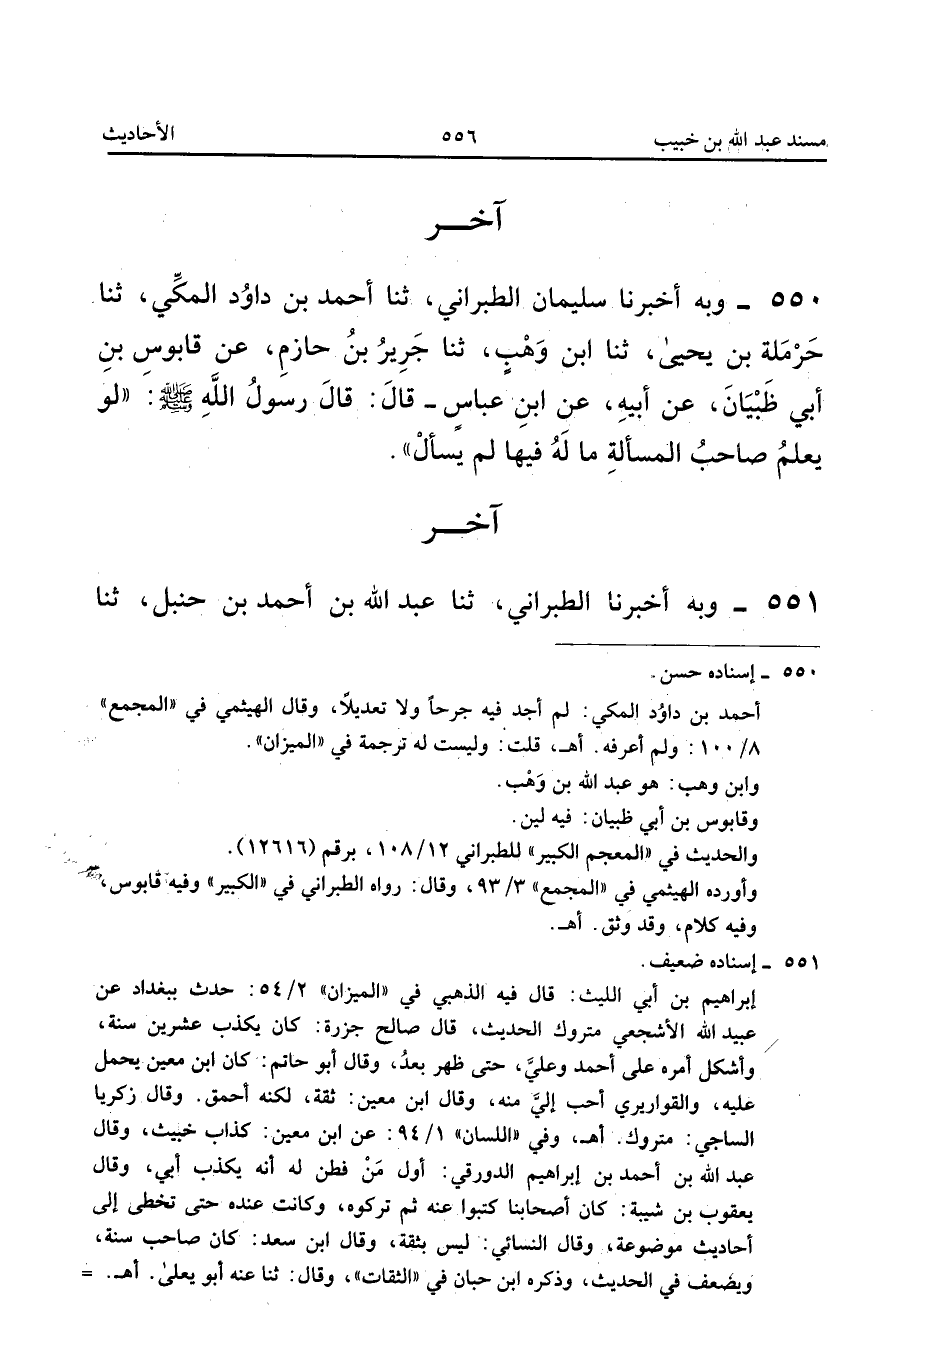 مسند عبد الله بن خبيب ٥٥٦ الأحاديث
آخـــر
٥٥٠ ـ وبه أخبرنا سليمان الطبراني، ثنا أحمد بن داوُد المكيِّ، ثنا
حَرْمَلة بن يحيىٰ، ثنا ابن وَهْبٍ، ثنا جَرِيرُ بنُ حازمٍ، عن قابوسِ بنِ
أبي ظَبْيَانَ، عن أبيهِ، عن ابنِ عباسٍ ـ قالَ: قالَ رسولُ اللَّهِ ﷺ: «لو
يعلمُ صاحبُ المسألةِ ما لَهُ فيها لم يسألْ».
آخـــر
٥٥١ ـ وبه أخبرنا الطبراني، ثنا عبد الله بن أحمد بن حنبل، ثنا
٥٥٠ ـ إسناده حسن.
أحمد بن داوُد المكي: لم أجد فيه جرحاً ولا تعديلاً، وقال الهيثمي في «المجمع»
٨/ ١٠٠: ولم أعرفه. أهـ، قلت: وليست له ترجمة في «الميزان».
وابن وهب: هو عبد الله بن وَهْب.
وقابوس بن أبي ظبيان: فيه لين.
والحديث في «المعجم الكبير» للطبراني ١٠٨/١٢، برقم (١٢٦١٦).
وأورده الهيثمي في «المجمع» ٩٣/٣، وقال: رواه الطبراني في «الكبير» وفيه قابوس،
وفيه كلام، وقد وثق. أهـ.
٥٥١ ـ إسناده ضعيف.
إبراهيم بن أبي الليث: قال فيه الذهبي في «الميزان» ٥٤/٢: حدث ببغداد عن
عبيد الله الأشجعي متروك الحديث، قال صالح جزرة: كان يكذب عشرين سنة،
وأشكل أمره على أحمد وعليَّ، حتى ظهر بعدُ، وقال أبو حاتم: كان ابن معين يحمل
عليه، والقواريري أحب إليَّ منه، وقال ابن معين: ثقة، لكنه أحمق. وقال زكريا
الساجي: متروك. أهـ، وفي «اللسان» ٩٤/١: عن ابن معين: كذاب خبيث، وقال
عبد الله بن أحمد بن إبراهيم الدورقي: أول مَنْ فطن له أنه يكذب أبي، وقال
يعقوب بن شيبة: كان أصحابنا كتبوا عنه ثم تركوه، وكانت عنده حتى تخطى إلى
أحاديث موضوعة، وقال النسائي: ليس بثقة، وقال ابن سعد: كان صاحب سنة،
ويضعف في الحديث، وذكره ابن حبان في «الثقات»، وقال: ثنا عنه أبو يعلىٰ. أهـ. =